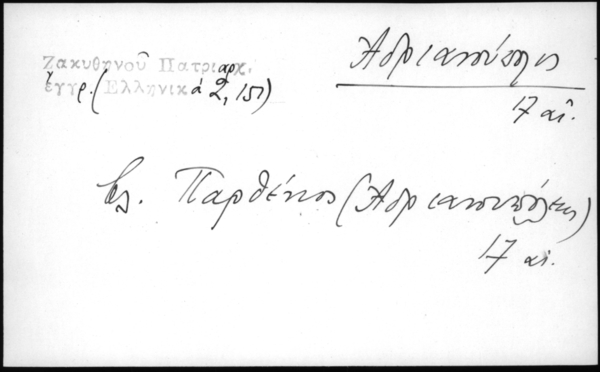 Ζακυθηνοῦ Πατριαρχ.
ἔγγρ. (Ἑλληνικά 2, 151)
Ἀδριανούπολις
17 αἰ.
Παρθένιος (Ἀδριανουπόλεως)
17 αἰ.